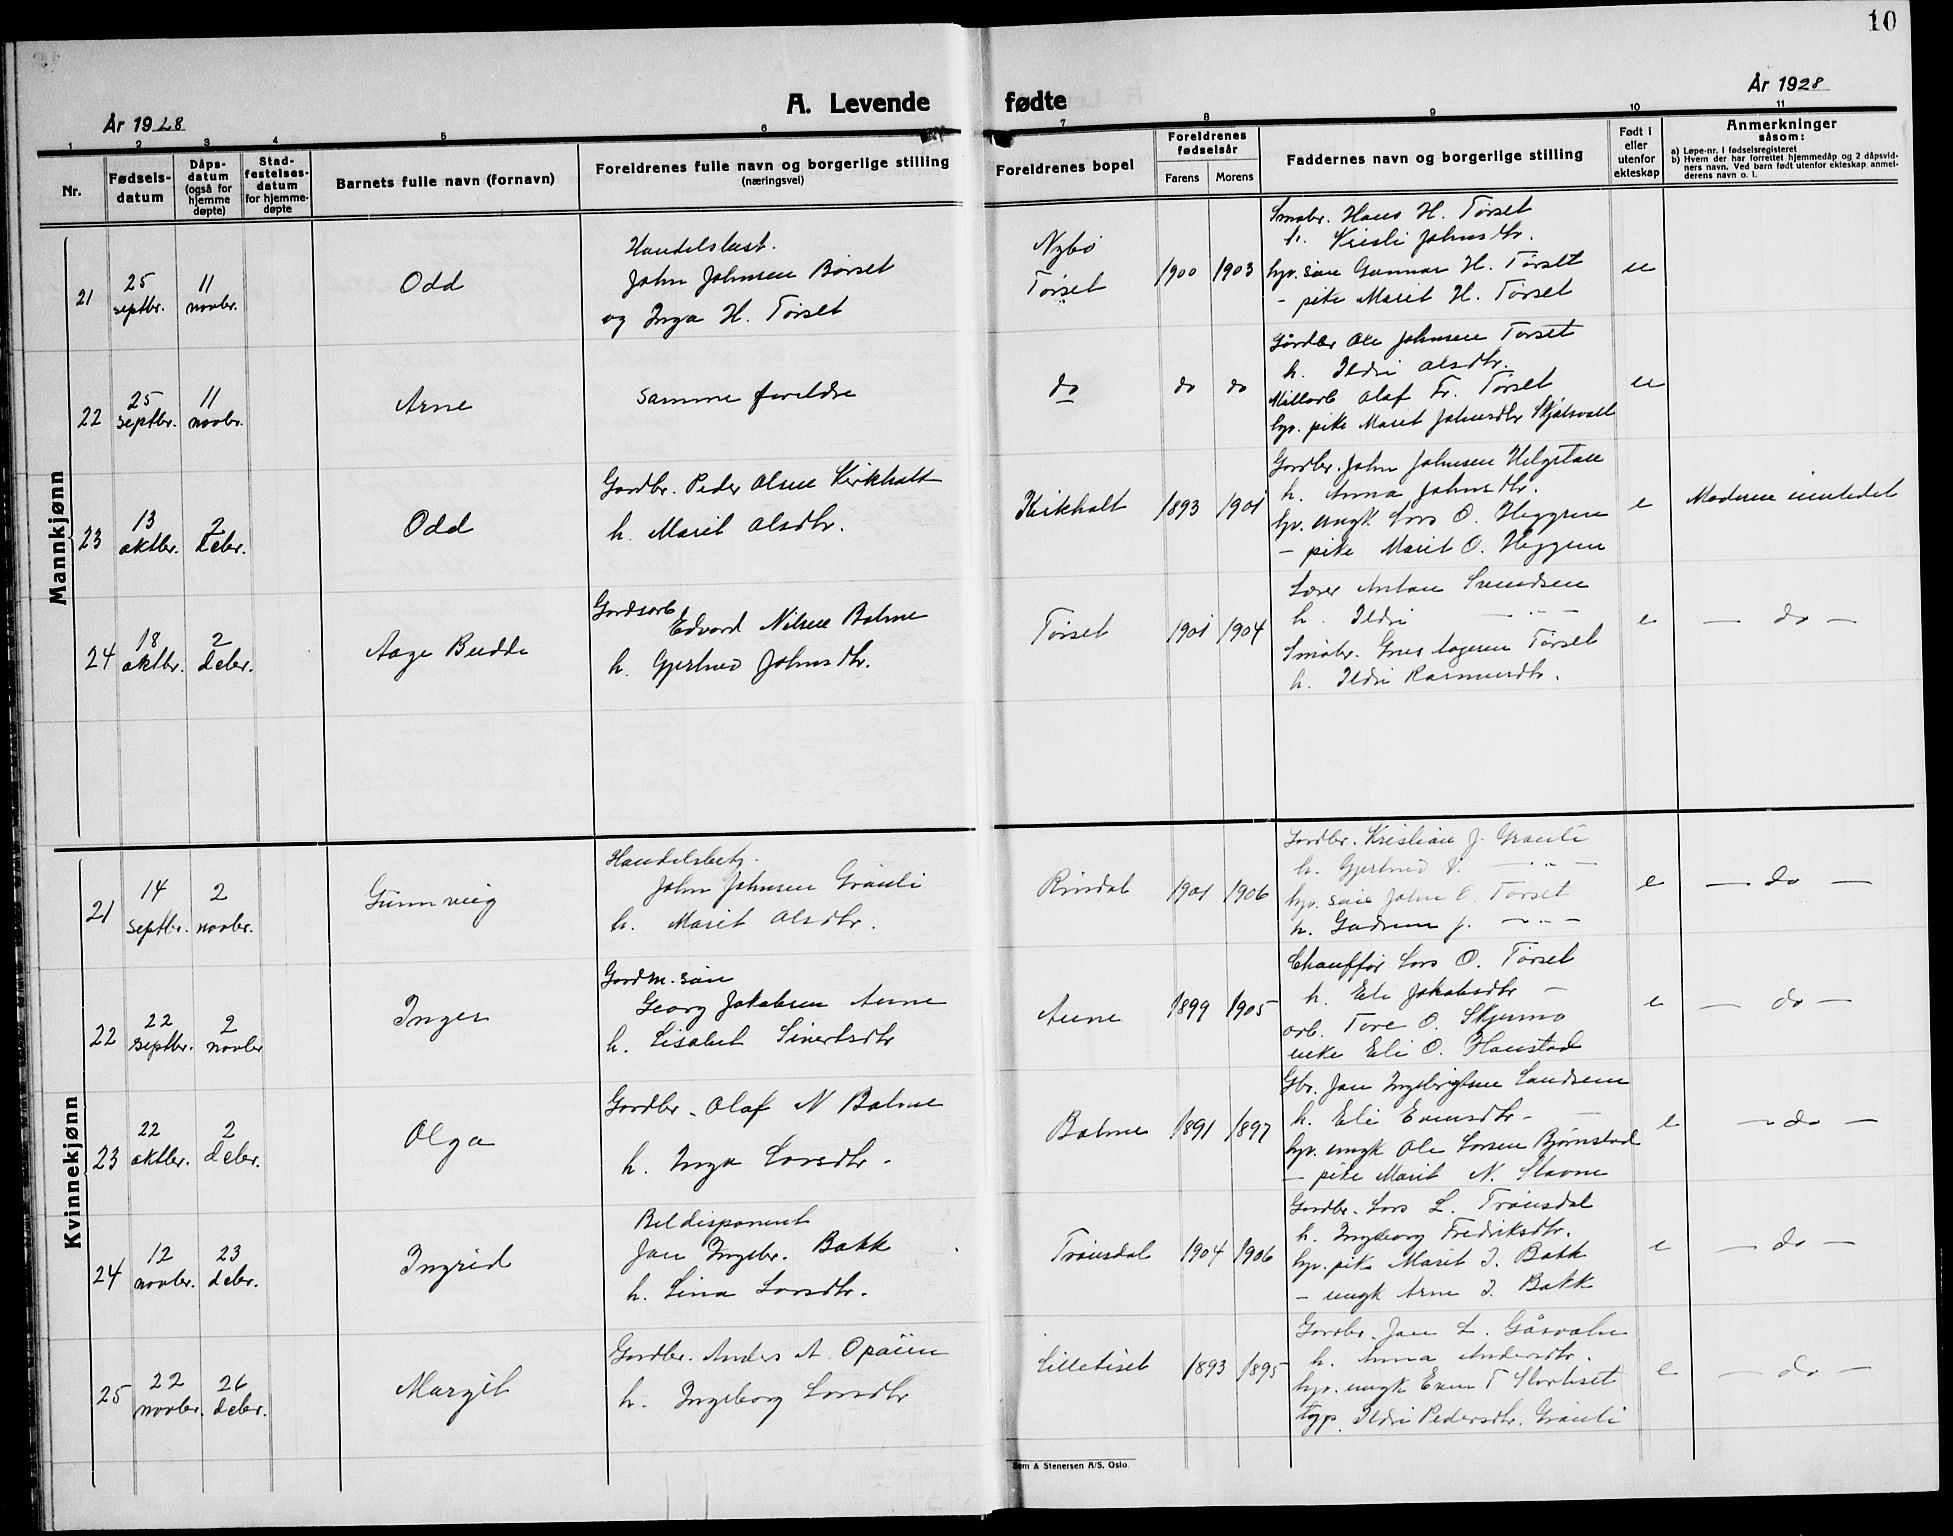 10
År 1928
A. Levende fødte
År 1928
1 2 3 4 5 6 7 8 9 10 11
Nr.
Fødsels-
datum
Dåps-
datum
(også for
hjemme
døpte)
Stad-
festelses-
datum
for hjemme-
døpte
Barnets fulle navn (fornavn)
Foreldrenes fulle navn og borgerlige stilling
(næringsvei)
Foreldrenes bopel
Foreldrenes
fødselsår
Farens Morens
Faddernes navn og borgerlige stilling
Født i
eller
utenfor
ekteskap
Anmerkninger
såsom:
a) Løpe-nr. i fødselsregisteret
b) Hvem der har forrettet hjemmedåp og 2 dåpsvid-
ners navn. Ved barn født utenfor ekteskap, anmel-
derens navn o. l.
Mannkjønn
21
25
septbr.
11
novbr.
Odd
John Johnsen Børset
og Inga H. Tørset
Nybo
Tørset
1900 1903
Smabr. Hans H. Tørset
h. Kristi Johnsdtr.
hv. søn Gunnar H. Tørset
- pike Marit H. Tørset
u
22
25
septbr.
11
novbr.
Arne
samme foreldre
do
do do
Gårdbr Ole Johnsen Tørset
h. Ildri Olsdtr.
Olaf Fr. Tørset
hv. pike Marit Johnsdtr
u
23
13
oktbr.
2
debr.
Odd
Gardbr. Peder Olsen Kirkholt
h. Marit Olsdtr.
Kirkholt
1893 1901
Gardbr. John Johnsen Helgetun
h. Anna Johnsdtr.
hv. ungk Lars O. Heggem
- pike Marit O. Heggem
e
Moderen innledet
24
18
oktbr.
2
debr.
Aage Budde
Gardsarb
Edvard Nilsen Bolme
h. Gjertrud Johnsdtr.
Tørset
1901 1904
Lærer Anton Svendsen
h. Ildri — " —
Smabr. Tørset
h. Ildri Rasmusdtr.
e
— do —
Kvinnekjønn
21
14
septbr.
2
novbr.
Gunnveig
Handelsbetj.
John Johnsen Grønli
h. Marit Olsdtr.
Rindal
1901 1906
Gardbr. Kristian J. Grønli
h. Gjertrud — " —
hv. søn John O. Tørset
h. Gudrun J. — " —
e
— do —
22
22
septbr.
2
novbr
Inger
Gardm. søn
Georg Jakobsen Aune
h. Lisabet Sivertsdtr
Aune
1899 1905
Chauffør Lars O. Tørset
h. Eli Jakobsdtr —
arb. Tore O. Skjermo
enke Eli O. Hanstad
e
— do —
23
22
oktbr.
2
debr.
Olga
Gardbr. Olaf N Bolme
h. Inga Larsdtr.
Bolme
1891 1897
Gbr. Jan Ingebrigtsen Landsem
h. Eli Evensdtr. —
hv. ungk Ole Larsen Bjørnstad
— pike Marit N. Stavne
e
— do —
24
12
novbr.
23
debr.
Ingrid
Bildisponent
Jan Ingebr. Bakk
h. Lina Larsdtr.
Trønsdal
1904 1906
Gardbr. Lars L. Trønsdal
h. Ingeborg Fredriksdtr.
hv. pike Marit I. Bakk
— ungk Arne I. Bakk
e
— do —
25
22
novbr.
26
debr.
Margit
Gardbr. Anders A. Opøien
h. Ingeborg Larsdtr
Lilletiset
1893 1895
Gardbr. Jan L. Gåsvatn
h. Anna Andersdtr.
hv. ungk Even T Stortiset
Ildri Pedersdtr. Grønli
e
— do —
Sem & Stenersen A/S, Oslo.